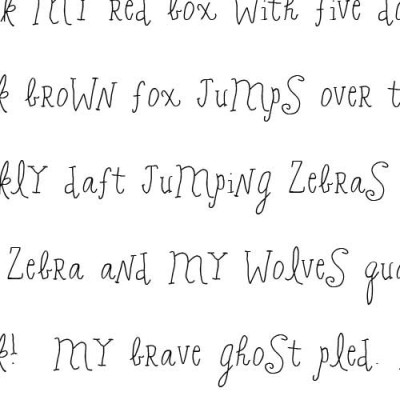 k MY red box with five do
k brown fox jumps over t
kly daft jumping zebras
Zebra and my wolves qua
k! My brave ghost pled.